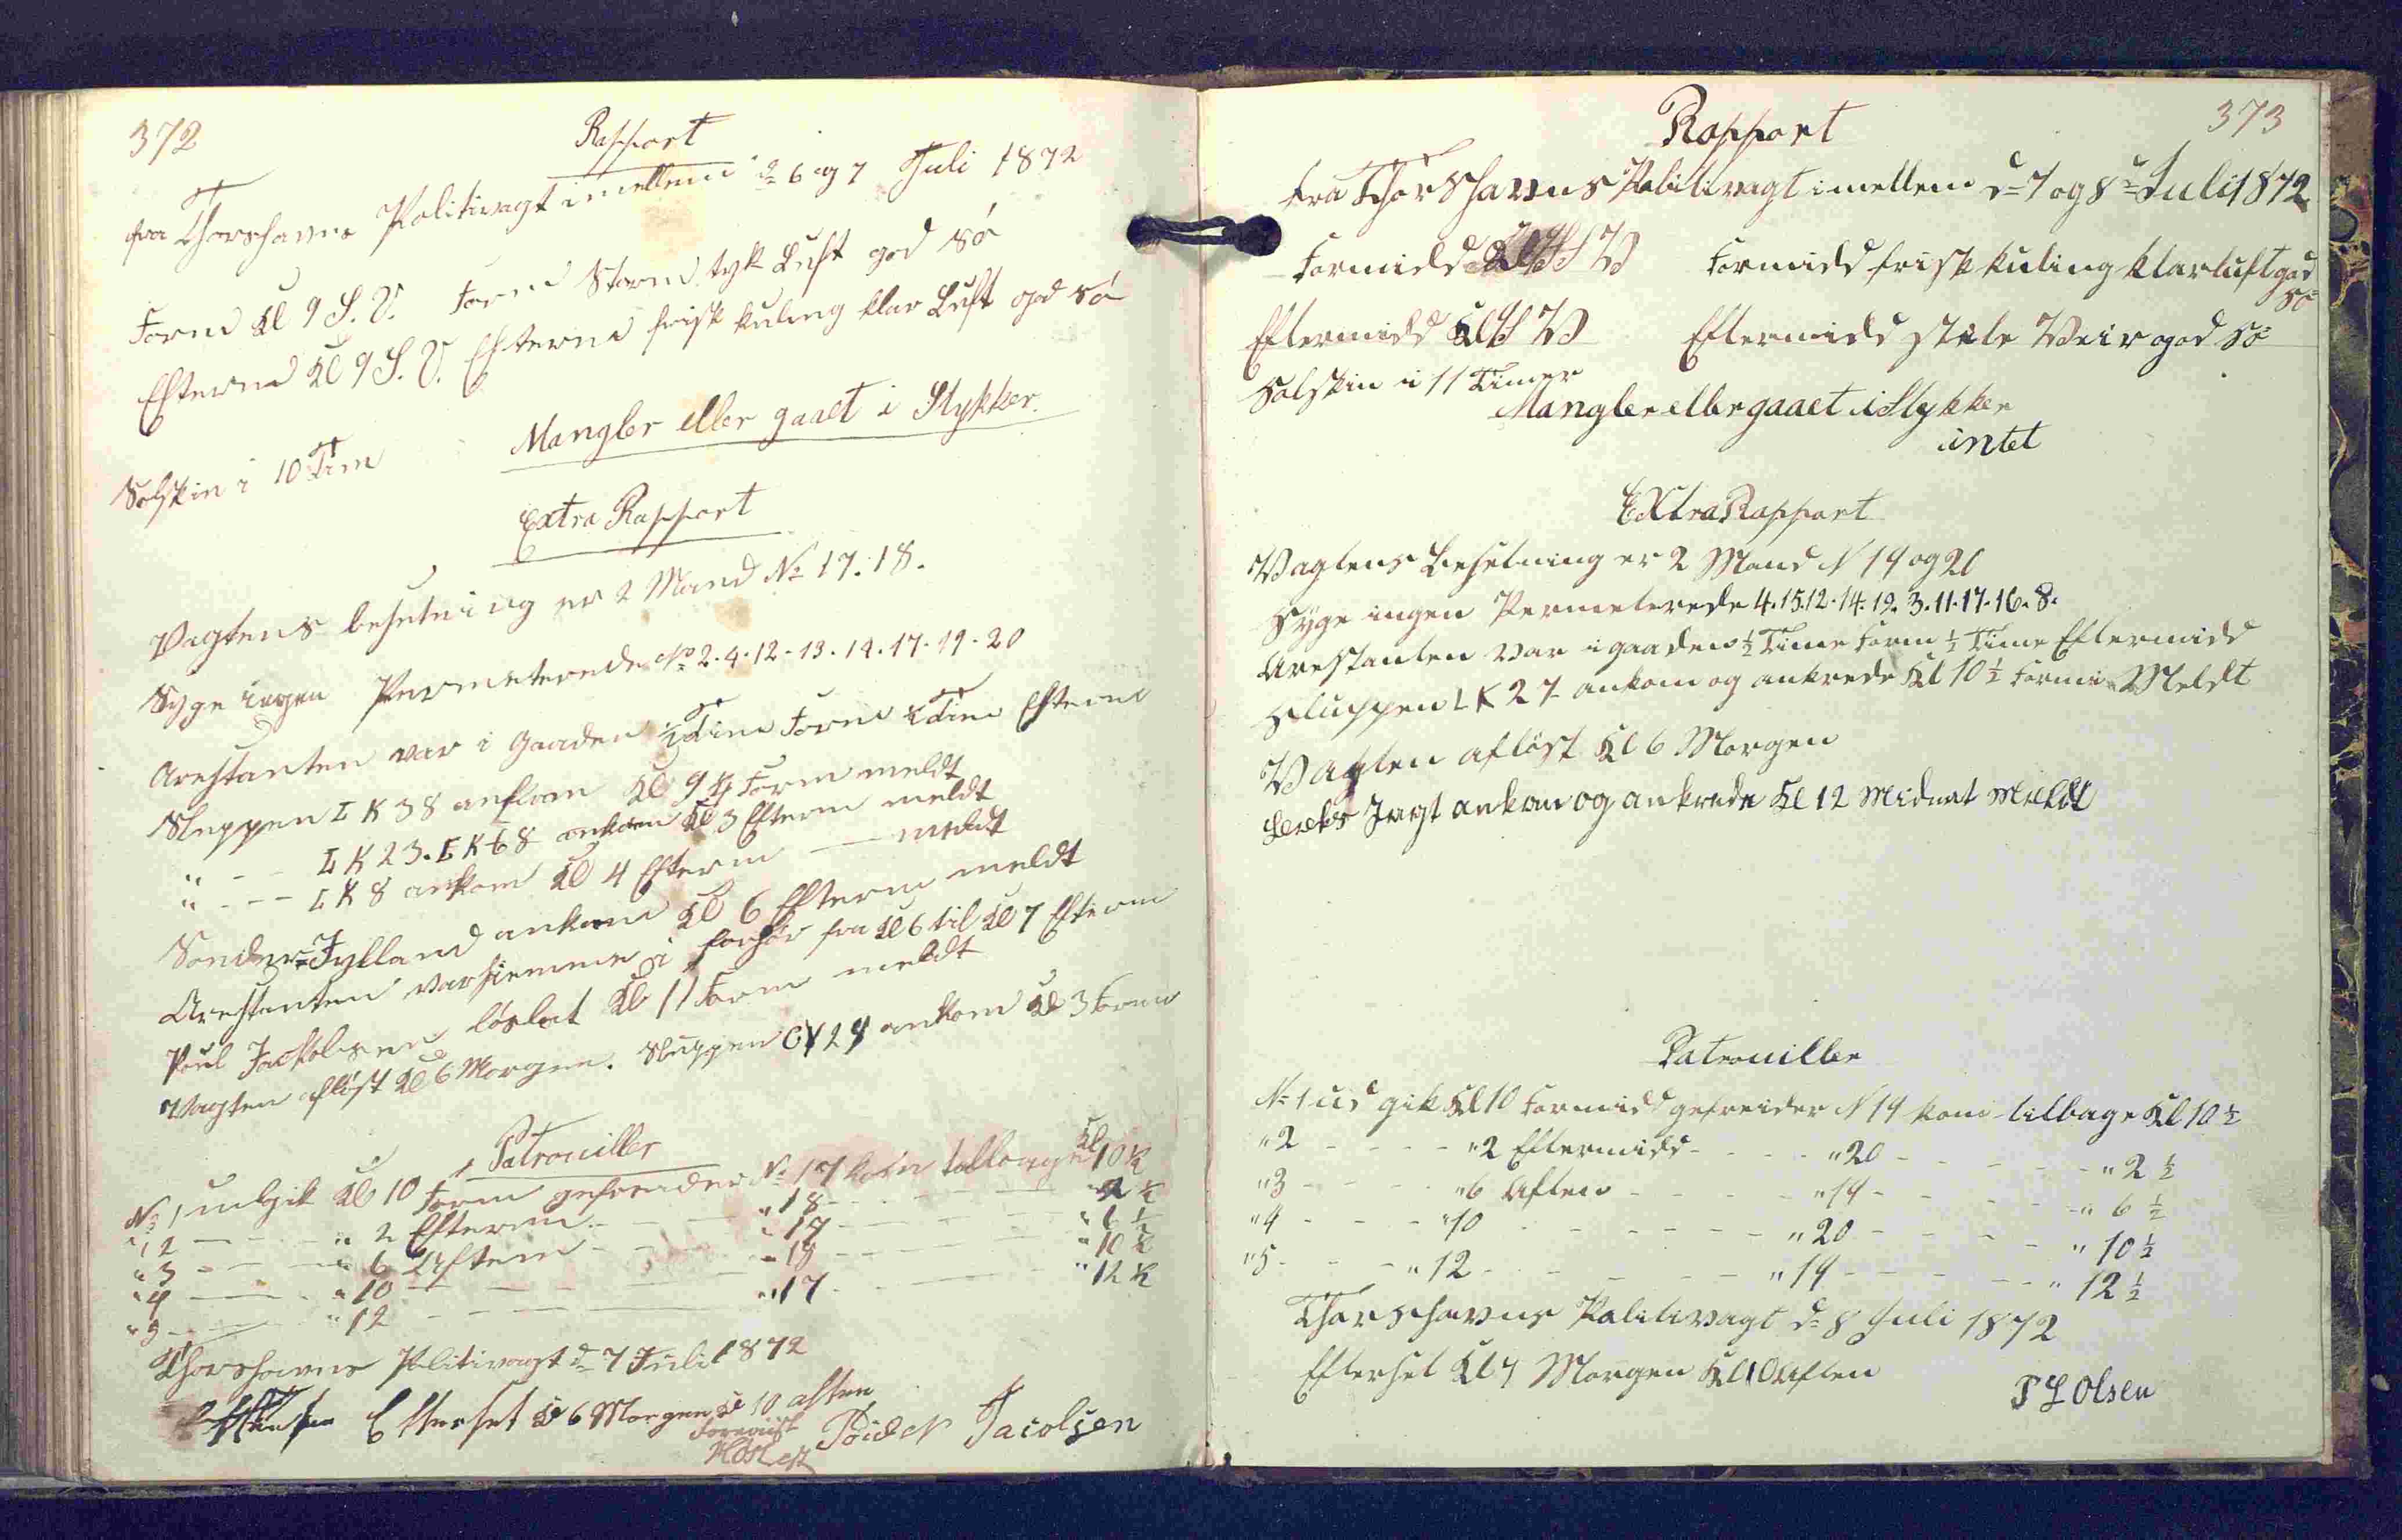 372
Rapport
fra Thorshavns Politivagt imellem d 6 og 7 Juli 1872
Form Kl 9 S. V. Form Storm tyk Luft god Sö
Efterm Kl 9 S. V. Efterm frisk kuling klar Luft god Sö
Solskin i 10 Tim
Mangler eller gaaet i Stykker
Extra Rapport
Vagtens besetning er 2 Mand No 17. 18.
Syge ingen Permeterede No 2. 4. 12. 13. 14. 17. 19. 20
Arestanten var i Gaarden ½ Time Form ½ Time Efterm
Sluppen LK 38 ankom Kl 9 ½ Form meldt
" - - LK 23. LK 68 ankom Kl 3 Efterm meldt
" - - - LK 8 ankom Kl 4 Efterm — meldt
Sönder-Jylland ankom Kl 6 Efterm meldt
Arestanten var hiemme i forhör fra Kl 6 til Kl 7 Efterm
Poul Jackobsen löslat Kl 11 Form meldt
Vagten aflöst Kl 6 Morgen. Sluppen ankom Kl 3 Form
Patrouiller
No 1 udgik Kl 10 Form gefreider No 17 kom tilbage Kl 10 ½
" 2 — - - " 2 Efterm - - — " 18 - - - — " 2 ½
" 3 - — - " 6 Aften - - - " 17 - - - " 6 ½
" 4 — - " 10 - - - " 18 - - - " 10 ½
" 5 - — " 12 - - - — " 17 - - — " 12 ½
Thorshavns Politivagt d 7 Juli 1872
Efterset Kl 6 Morgen Kl 10 aften
Forevist
Jacobsen
373
Rapport
fra Thorshavns Politivagt imellem d 7 og 8 Juli 1872
Formidd Kl 9 S V Formidd frisk kuling klar luft god
Sö
Eftermidd Kl 9 S V Eftermidd stele Veir god Sö
Solskin i 11 Timer
Mangler eller gaaet i Stykker
intet
Extra Rapport
Vagtens Besetning er 2 Mand N 19 og 20
Syge ingen Permeterede 4. 15. 12. 14. 19. 3. 11. 17. 16. 8.
Arestanten var i gaarden ½ Time Form ½ Time Eftermidd
Sluppen LK 27 ankom og ankrede Kl 10 ½ Formi Meldt
Vagten aflöst Kl 6 Morgen
Jagt ankom og ankrede Kl 12 Midnat Meldt
Patrouiller
No 1 ud gik Kl 10 Formidd gefreider N 19 kom tilbage Kl 10 ½
" 2 - - - - " 2 Eftermidd - - - " 20 - - - - - " 2 ½
" 3 - - - - " 6 Aften - - - - " 19 - - - - " 6 ½
" 4 - - - " 10 - - - - " 20 - - - - " 10 ½
" 5 - - - " 12 - - - - " 19 - - - - " 12 ½
Thorshavns Politivagt d 8 Juli 1872
Efterset Kl 7 Morgen Kl 10 Aften
P L Olsen